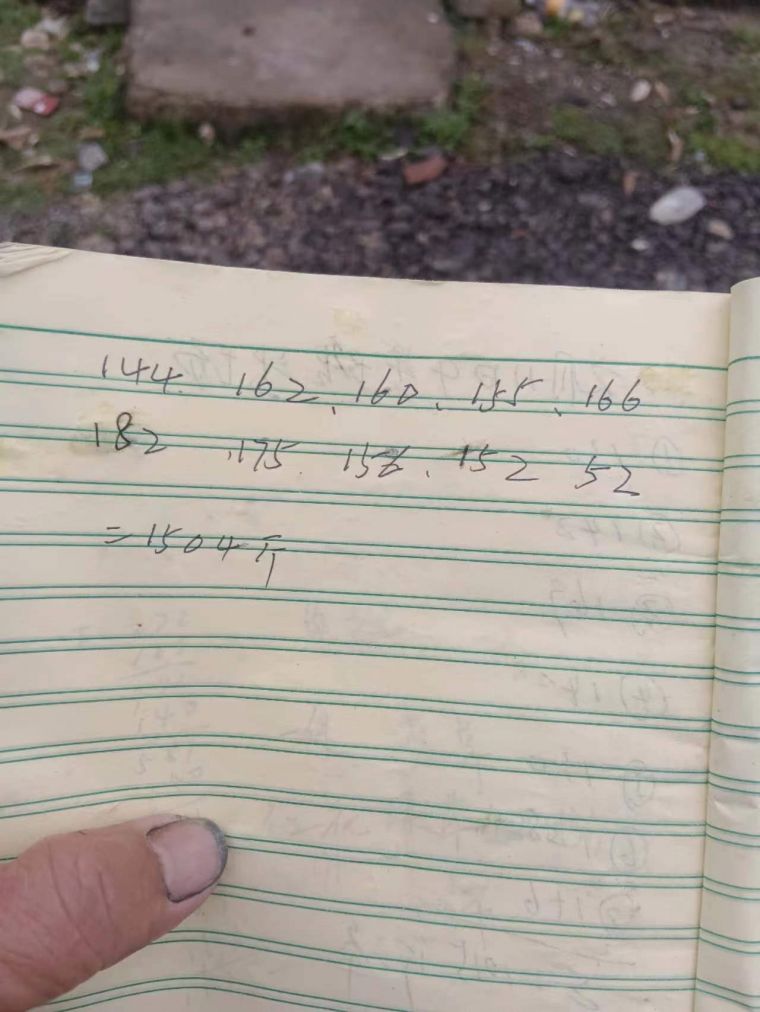 144 162、160、155、166
182、175 156、152 52
=1504斤